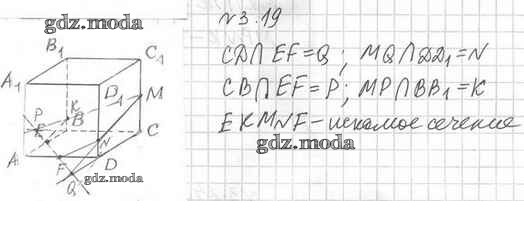 gdz.moda
N3.19
B₁
C₁
A₁
D₁
M
P
K
E
B
C
A
N
F
D
Q
gdz.moda
CD∩EF=Q; MQ∩DD₁=N
CB∩EF=P; MP∩BB₁=K
EKMNF-искомое сечение
gdz.moda